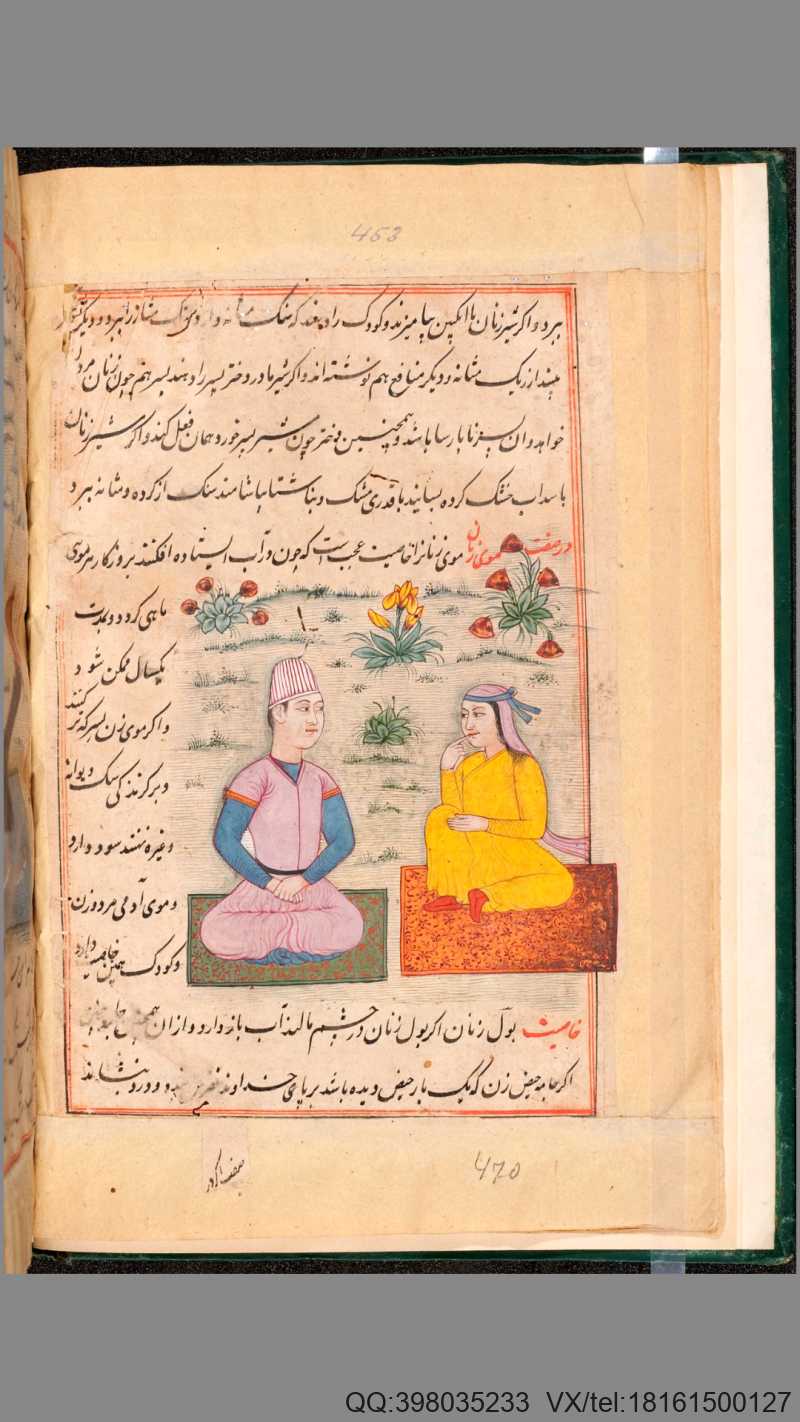 453
ببرد و اگر شیر زنان با انگبین بیامیزند و کودک را دهند که سنک مثانه دارد سنک مثانه را ببرد و دیگر
از ریک مثانه و دیگر منافع هم نوشته‌اند و اگر شیر مادر دختر پسر را دهند پسر هم چون زنان مرد
خواهد و ان پسر ناپارسا باشد و همچنین دختر چون شیر پسر خورد همان فعل کند و اگر شیر زنان
با سداب خشک کرده بسایند با قدری مشک و بناشتا بیاشامند سنک از کرده و مثانه ببرد
در صفت موی زنان موی زنانرا خاصیت عجب است که چون در آب ایستاده افکنند بروزکار هر موی
ماهی کردد و بمدت
یکسال ممکن شود
و اگر موی زن بسرکه تر کنند
و بر کزندکی سک دیوانه
و غیره نهند سود دارد
و موی آدمی مرد و زن
و کودک همین خاصیه دارد
خاصیت بول زنان اکر بول زنان در چشم مالند آب باز دارد و از ان همچنین
اکر جامه حیض زن که یک بار حیض دیده باشد بر پای خداوند نقرس نهند درد بنشاند
470
QQ:398035233 VX/tel:18161500127